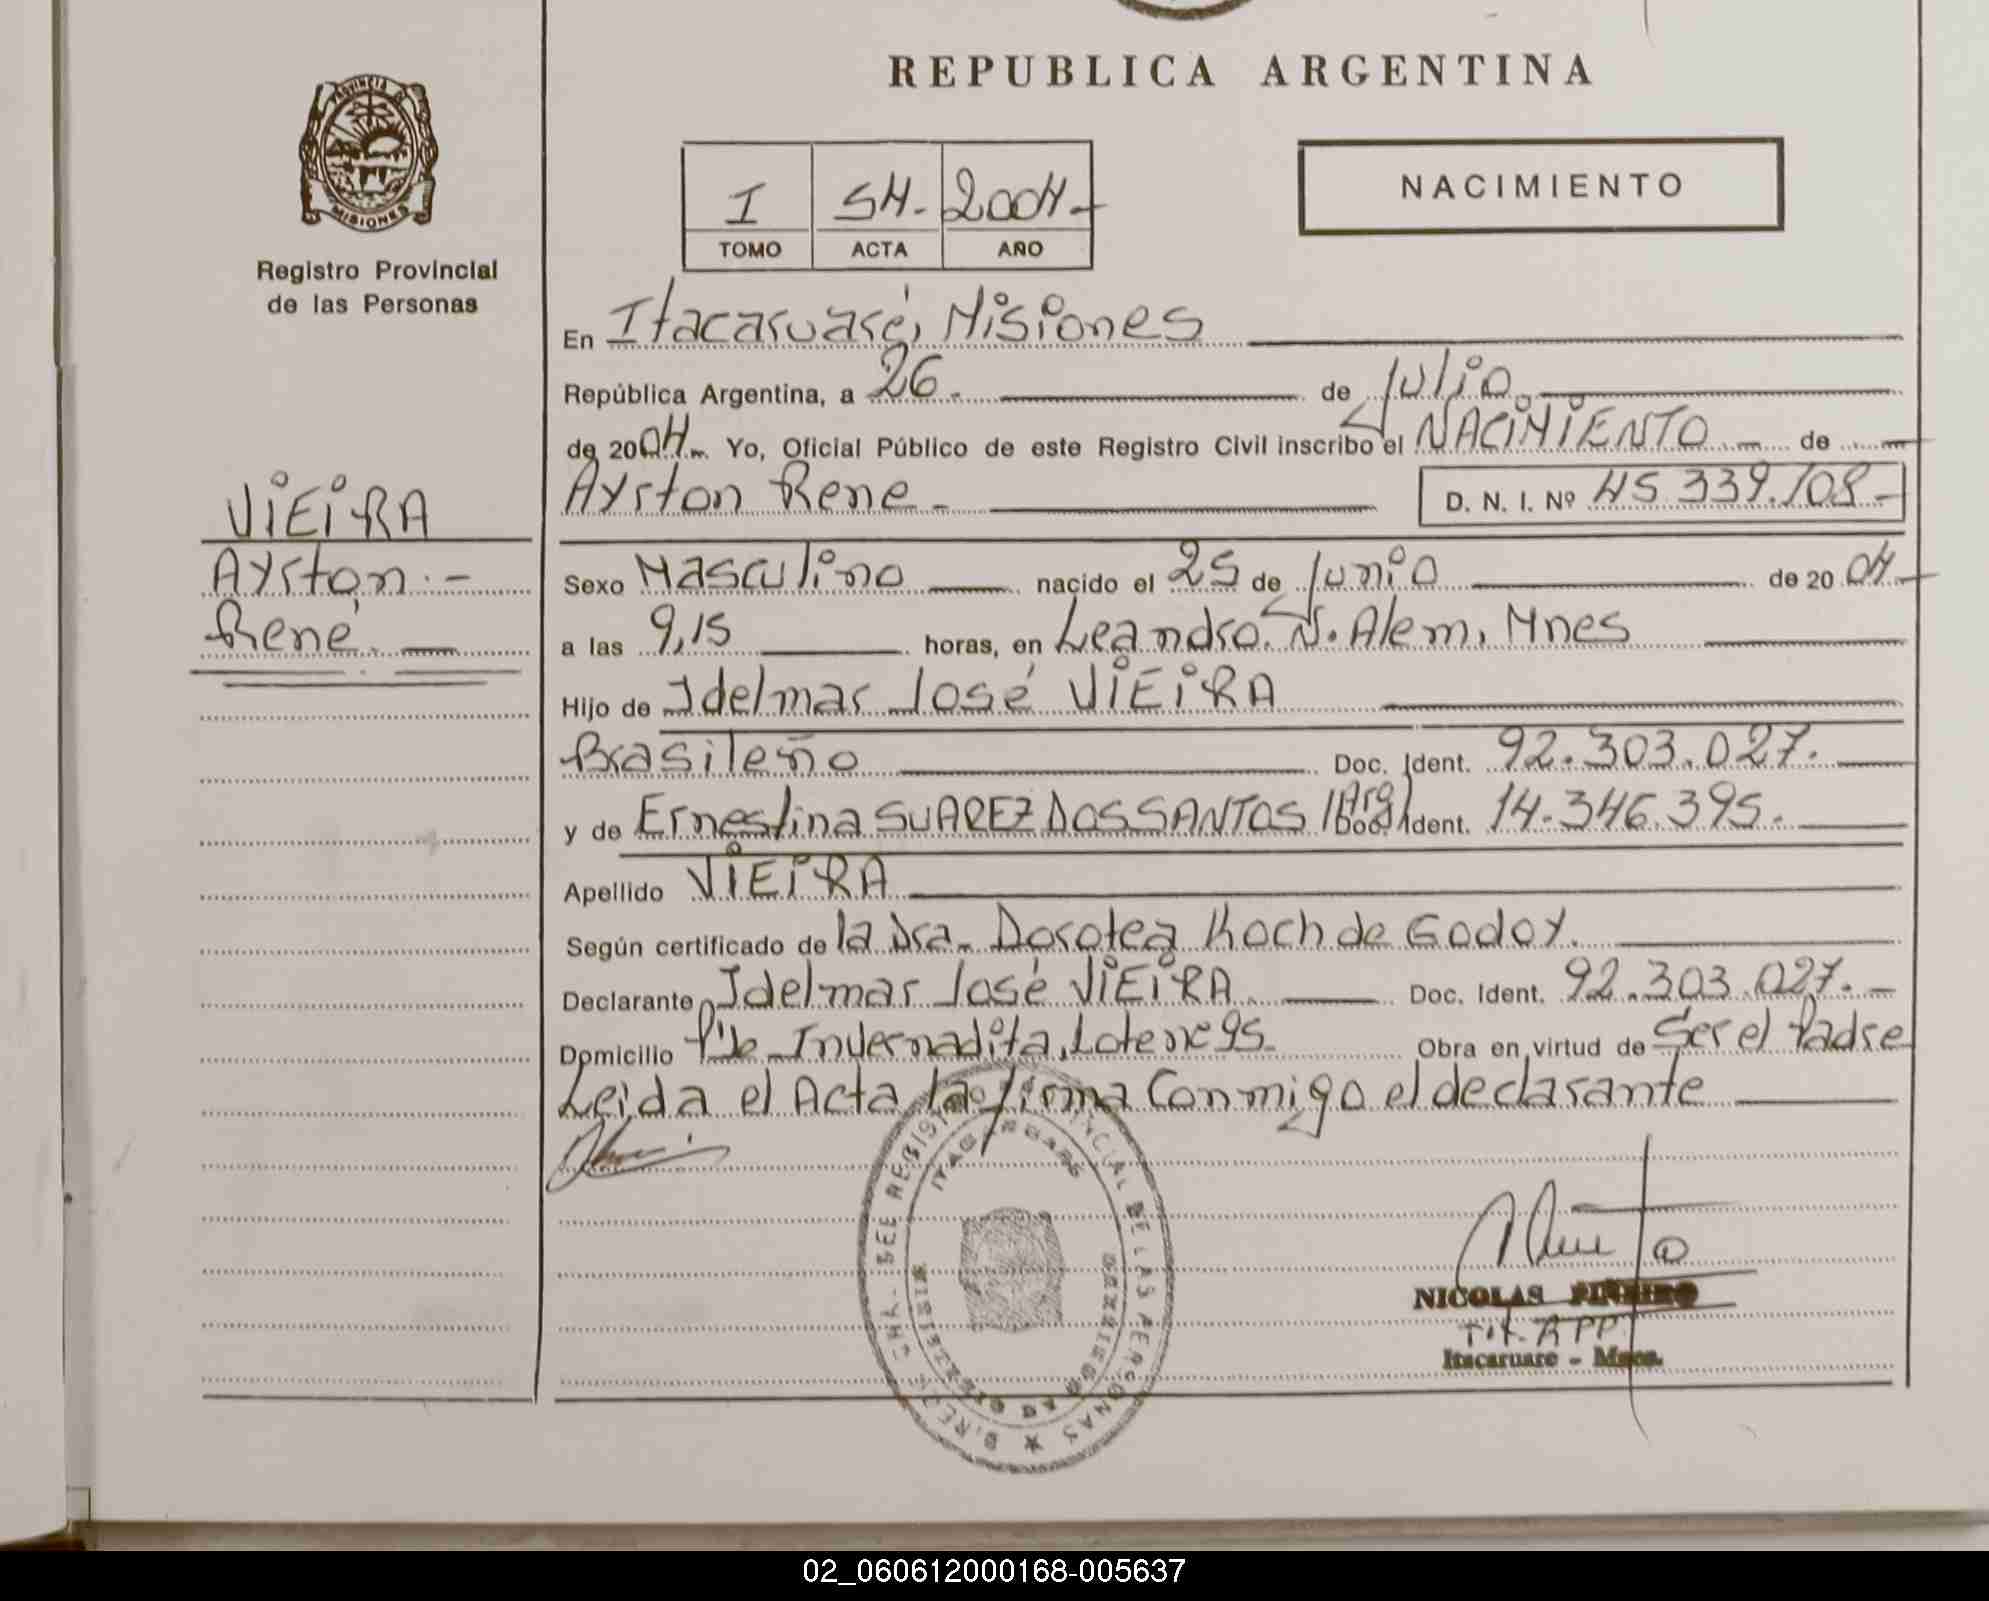 REPUBLICA ARGENTINA
PROVINCIA DE
MISIONES
Registro Provincial
de las Personas
I 54.- 2004.-
TOMO ACTA AÑO
NACIMIENTO
En Itacaruaré, Misiones
República Argentina, a 26.- de Julio.
de 2004.- Yo, Oficial Público de este Registro Civil inscribo el NACIMIENTO.- de
Ayrton Rene.- D. N. I. Nº 45.339.108.-
VIEIRA
Ayrton.-
René.
Sexo Masculino nacido el 25 de Junio de 2004.-
a las 9,15 horas, en Leandro. N. Alem, Mnes
Hijo de Idelmar José VIEIRA
Brasileño Doc. Ident. 92.303.027.-
y de Ernestina SUAREZ DOS SANTOS /Arg/ Doc. Ident. 14.346.395.-
Apellido VIEIRA
Según certificado de la Dra. Dorotea Koch de Godoy.
Declarante Idelmar José VIEIRA. Doc. Ident. 92.303.027.-
Domicilio Invernadita, Lote nº 95.- Obra en virtud de Ser el Padre
Leida el Acta la firma Conmigo el declarante
ITACARUARE
NICOLAS PIÑEIRO
Tit. A PP
Itacaruare - Mnes.
02_060612000168-005637